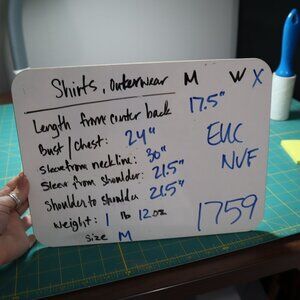 Shirts, outerwear M W X
Length from center back 17.5"
Bust / Chest: 24"
Sleeve from neckline: 30"
Sleeve from shoulder: 21.5"
Shoulder to shoulder 21.5"
Weight: 1 lb 12 oz
Size M
EUC
NVF
1759